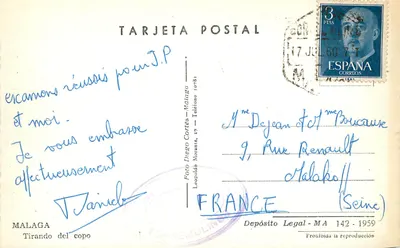 TARJETA POSTAL
3
PTAS
ESPAÑA
CORREOS
17 JUL 60
examens réussis pour J.P
et moi.
Je vous embrasse
affectueusement
Daniel
Foto Diego Cortés - Málaga
Mme Dejean et Mme Boucause
9, Rue Renault
Malakoff
FRANCE (Seine)
MALAGA
Tirando del copo
Depósito Legal - MA 142 - 1959
Prohibida la reproducción